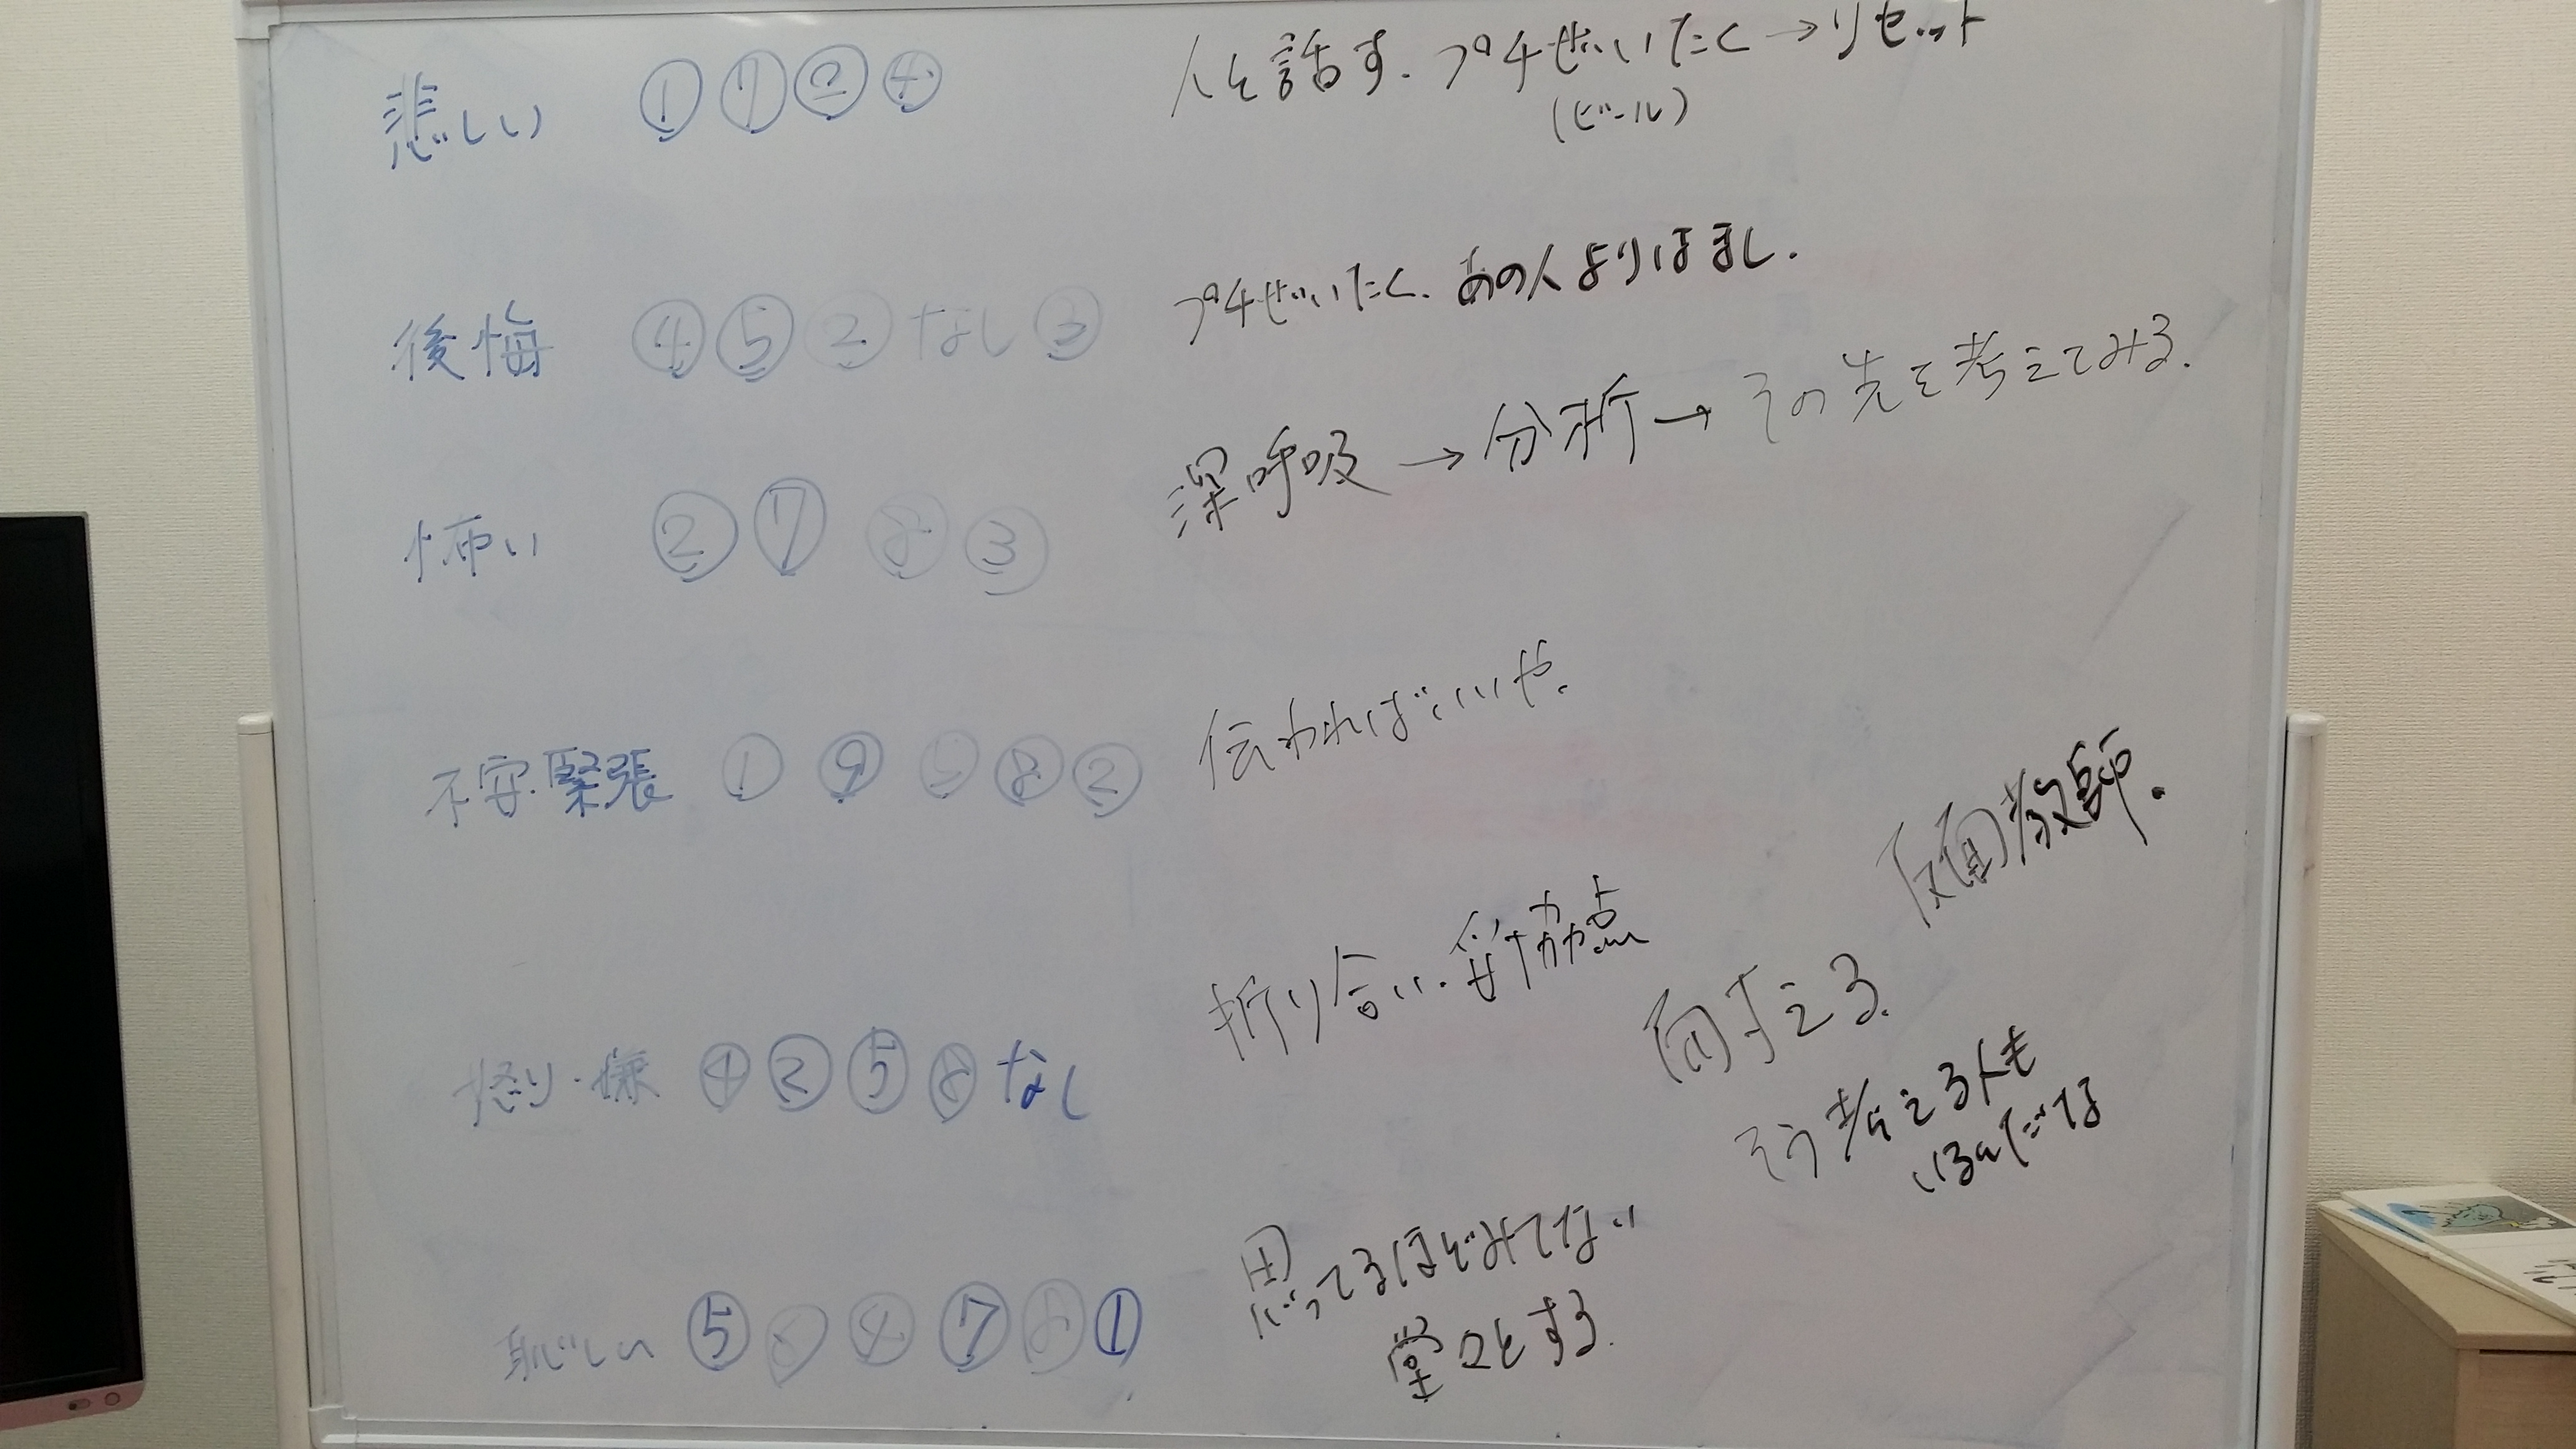 悲しい ① ⑦ ② ④ 人と話す. プチぜいたく→リセット
(ビール)
後悔 ④ ⑤ ② なし ③ プチぜいたく. あの人よりはまし.
深呼吸→分析→その先を考えてみる.
怖い ② ⑦ ⑧ ③
不安・緊張 ① ⑨ ⑧ ② 伝わればいいや.
反面教師.
折り合い. 妥協点
怒り・嫌 ④ ② ⑤ ⑧ なし
える.
そう考える人も
いるんだな
思ってるほどみてない
恥しい ⑤ ④ ⑦ ⑧ ① 堂々とする.